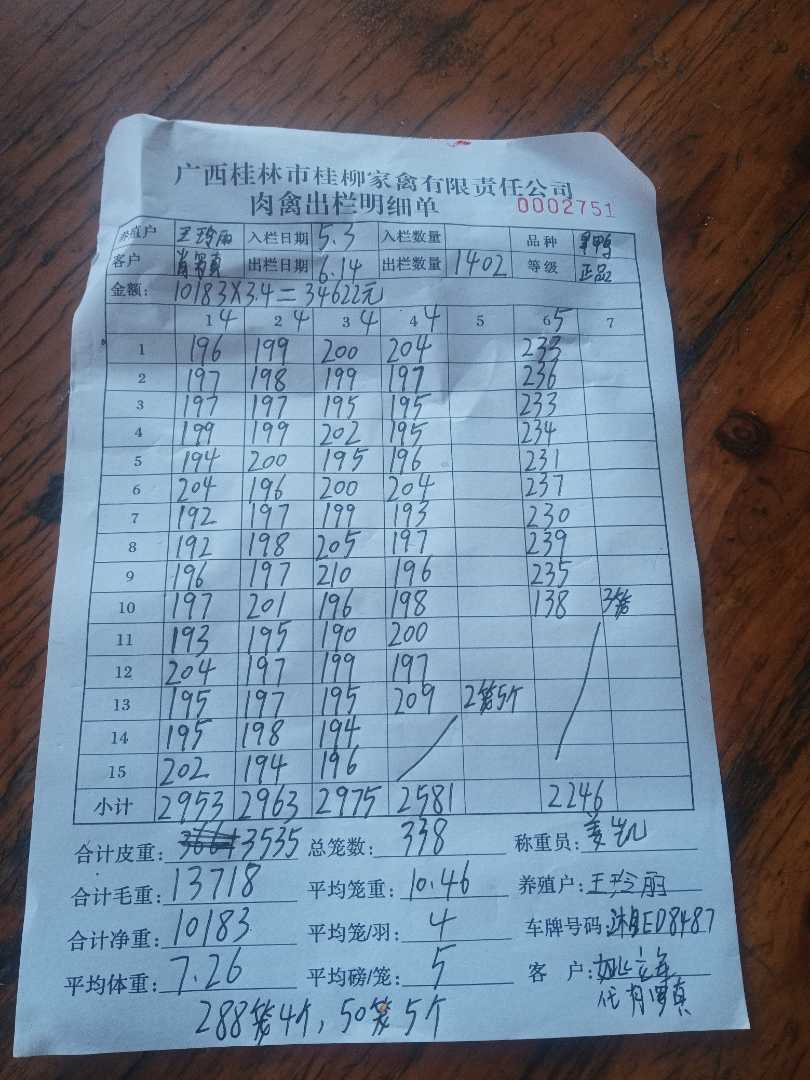 广西桂林市桂柳家禽有限责任公司
肉禽出栏明细单 0002751
养殖户 王玲丽 入栏日期 5.3 入栏数量 品种
客户 出栏日期 6.14 出栏数量 1402 等级 正品
金额: 10183×3.4=34622元
1 4 2 4 3 4 4 4 5 6 5 7
1 196 199 200 204 233
2 197 198 199 197 236
3 197 197 195 195 233
4 199 199 202 195 234
5 194 200 195 196 231
6 204 196 200 204 237
7 192 197 199 193 230
8 192 198 205 197 239
9 196 197 210 196 235
10 197 201 196 198 138 3笼
11 193 195 190 200
12 204 197 199 197
13 195 197 195 209 2笼5个
14 195 198 194
15 202 194 196
小计 2953 2963 2975 2581 2246
合计皮重: 3535 总笼数: 338 称重员: 姜凯
合计毛重: 13718 平均笼重: 10.46 养殖户: 王玲丽
合计净重: 10183 平均笼/羽: 4 车牌号码: 湘ED8487
平均体重: 7.26 平均磅/笼: 5 客 户:
288笼4个,50笼5个